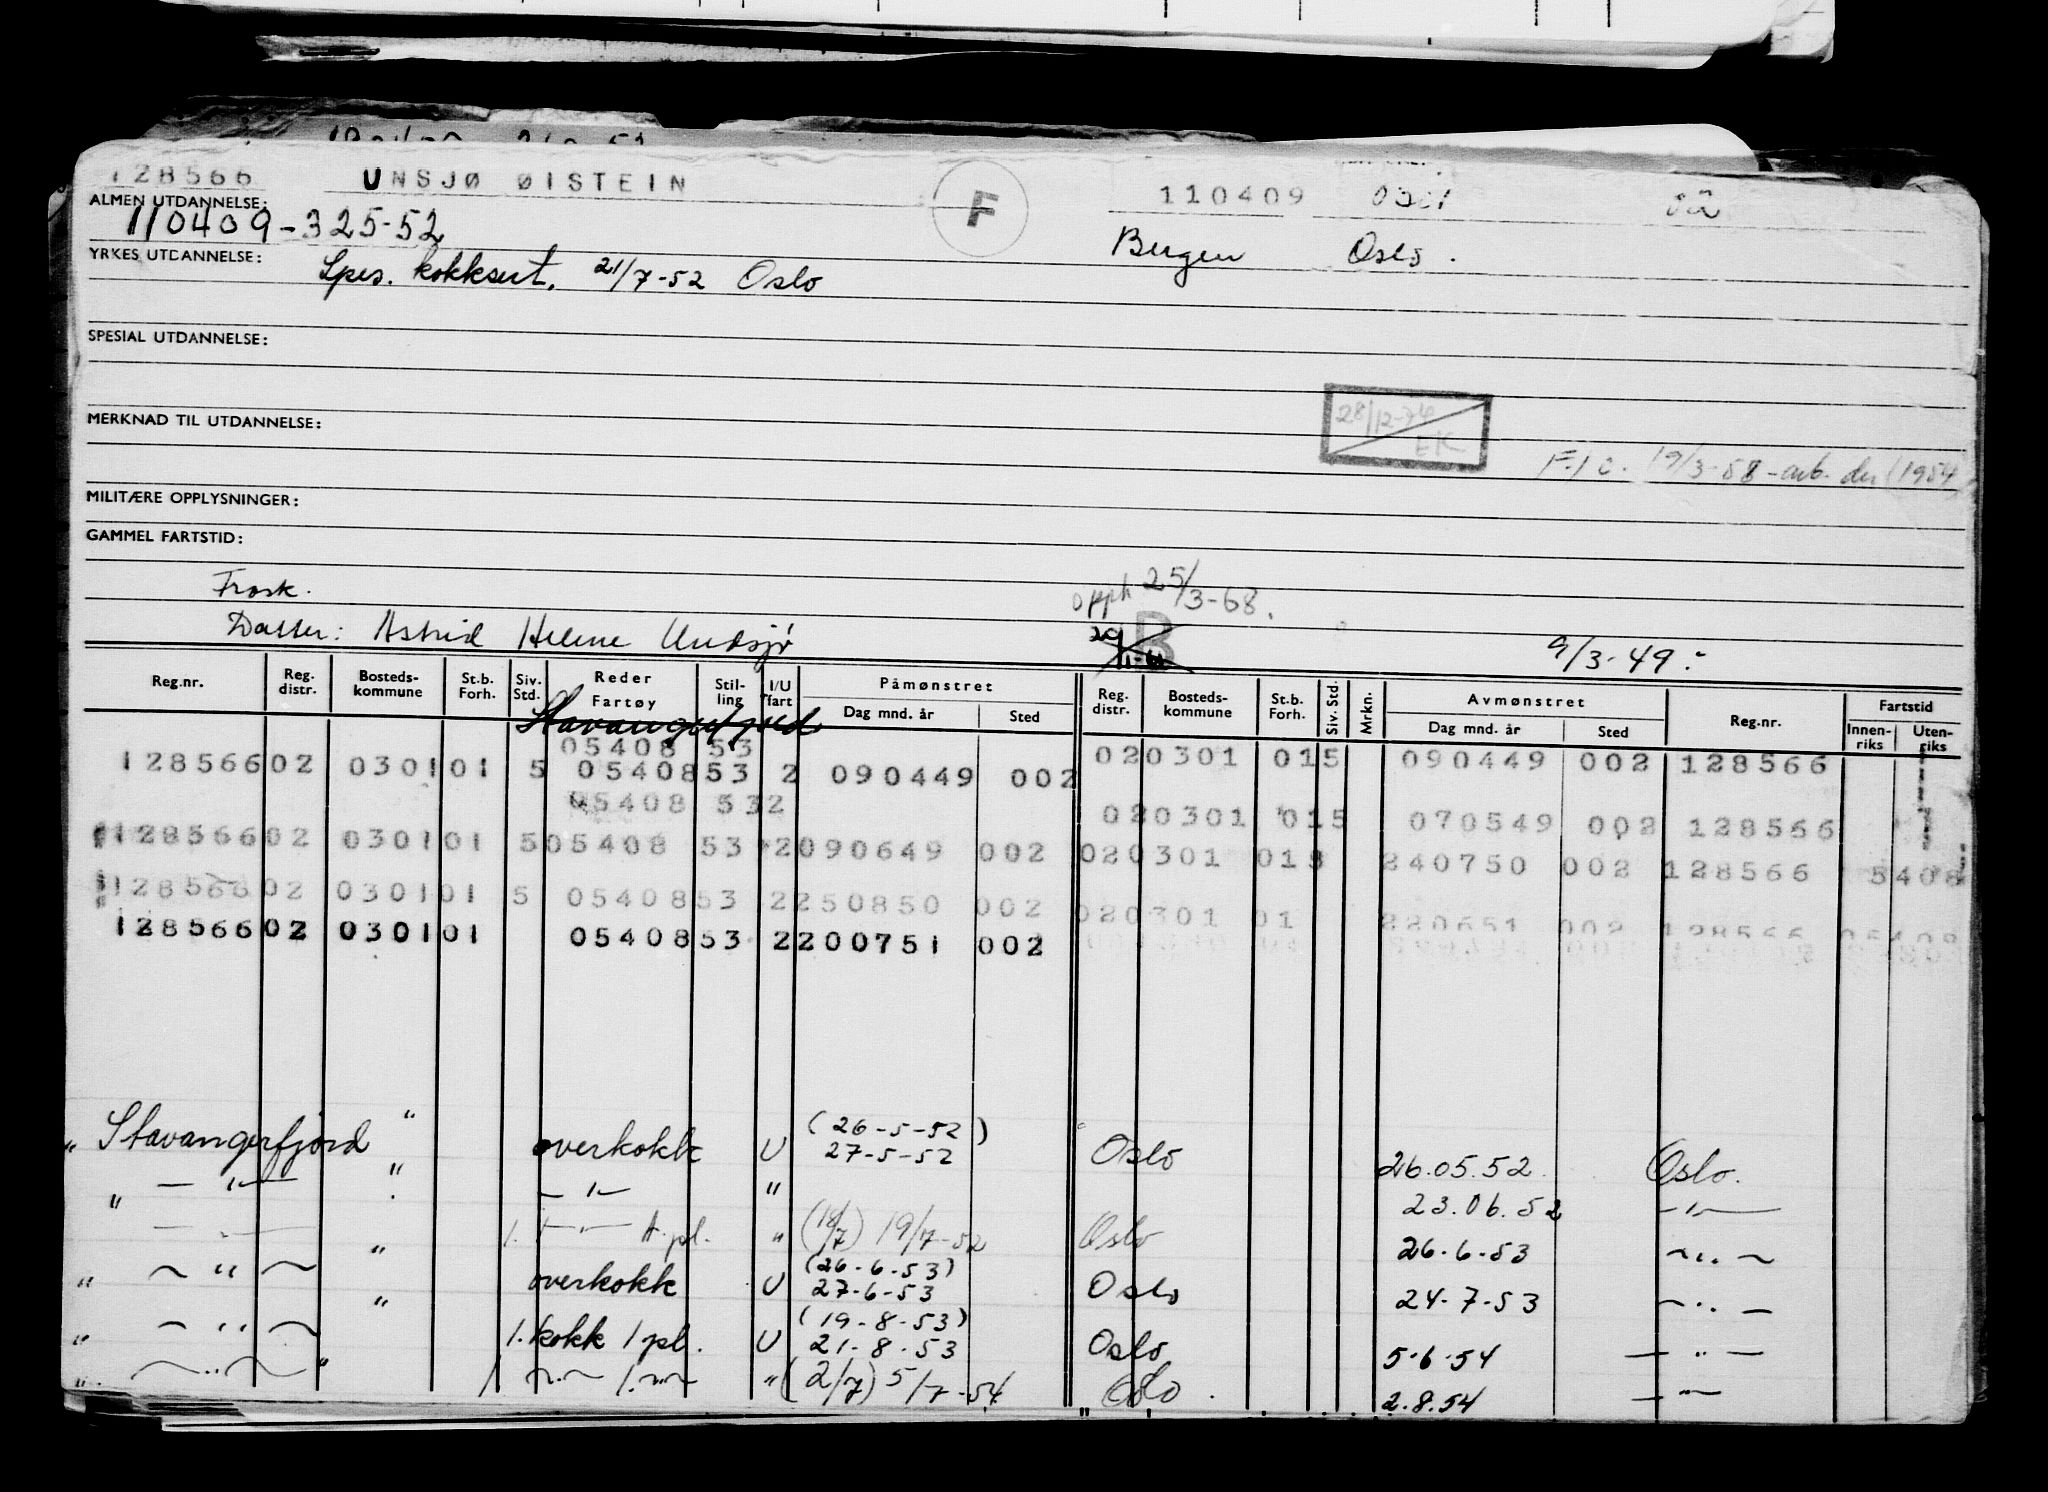 128566 UNSJØ ØISTEIN F 110409
ALMEN UTDANNELSE:
110409-325-52 Bergen Oslo.
YRKES UTDANNELSE: Spes. kokksert. 21/7-52 Oslo
SPESIAL UTDANNELSE:
28/12-74 EK
MERKNAD TIL UTDANNELSE:
19/3-58-arb. (1954
MILITÆRE OPPLYSNINGER:
GAMMEL FARTSTID:
Frask. opph 25/3-68.
Datter: Astrid Helene Undsjø B 9/3-49
Reg.nr. Reg. distr. Bosteds-kommune St.b. Forh. Siv. Std. Reder Fartøy Stil-ling I/U fart Påmønstret Dag mnd. år Sted Reg. distr. Bosteds-kommune St.b. Forh. Siv. Std. Mrkn. Avmønstret Dag mnd. år Sted Reg.nr. Fartstid Innen-riks Uten-riks
Stavangerfjord
05408 53
128566 02 0301 01 5 05408 53 2 090449 002 02 0301 01 5 090449 002 128566
05408 532
02 0301 01 5 070549 002 128566
128566 02 0301 01 5 05408 53 2 090649 002 02 0301 01 240750 002 128566 5408
128566 02 0301 01 5 05408 53 2 250850 002 02 0301 01 220651 002 128566 05408
128566 02 0301 01 05408 53 2 200751 002
" Stavangerfjord " overkokk U (26-5-52) 27-5-52 Oslo 26.05.52 Oslo.
" — " — " — " — " 23.06.52 — " —
— " — 1. — " — A.pl. " (18/7) 19/7-52 Oslo 26.6.53 — " —
" — " — " overkokk U (26.6.53) 27-6-53 Oslo 24-7-53 — " —
" — " — " 1. kokk 1 pl. U (19-8-53) 21-8-53 Oslo 5.6.54 — " —
" — " — " 1 — " — 1. — " — " (2/7) 5/7-54 Oslo 2.8.54 — " —